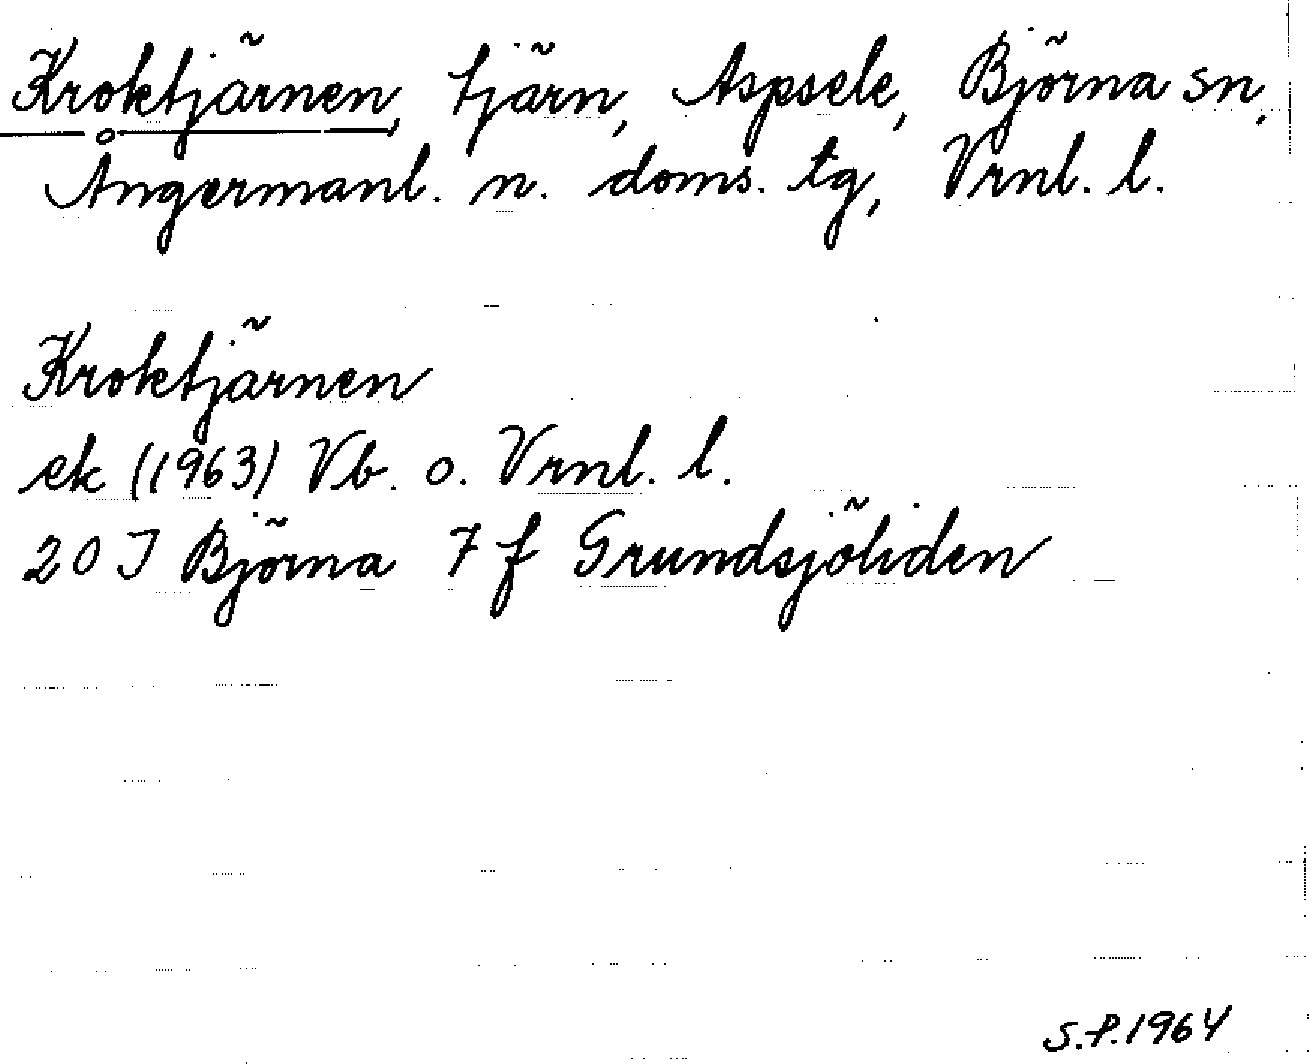 Kroktjärnen, tjärn, Aspsele, Björna sn,
Ångermanl. n. doms. tg, Vrnl. l.
Kroktjärnen
ek (1963) Vb. o. Vrnl. l.
20 J Björna 7 f Grundsjöliden
S.P. 1964